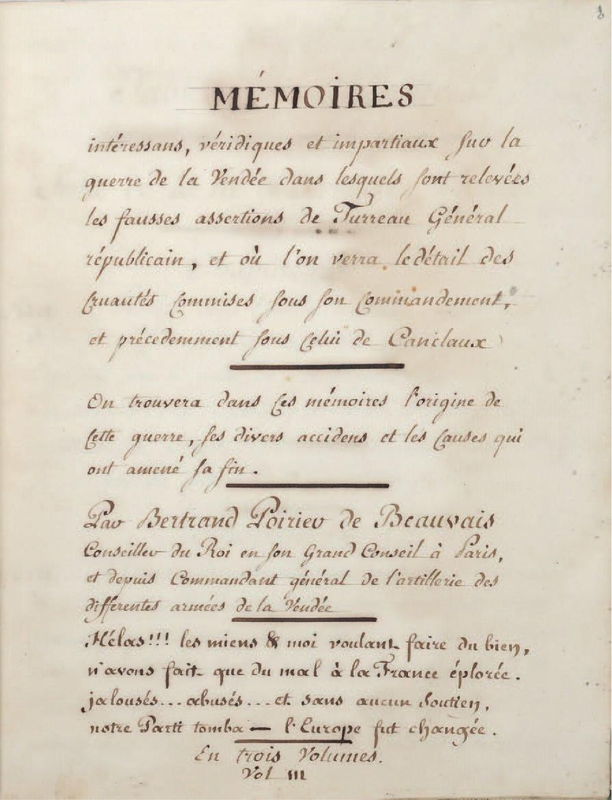 MÉMOIRES
intéressans, véridiques et impartiaux sur la
guerre de la Vendée dans lesquels sont relevées
les fausses assertions de Turreau Général
républicain, et où l'on verra le détail des
cruautés commises sous son commandement,
et précedemment sous celui de Canclaux
On trouvera dans ces mémoires l'origine de
cette guerre, ses divers accidens et les causes qui
ont amené sa fin.
Par Bertrand Poirier de Beauvais
Conseiller du Roi en son Grand Conseil à Paris,
et depuis Commandant général de l'artillerie des
differentes armées de la Vendée
Hélas!!! les miens & moi voulant faire du bien,
n'avons fait que du mal à la France éplorée.
jalousés...abusés...et sans aucun soutien,
notre Parti tomba — l'Europe fut changée.
En trois Volumes.
Vol III